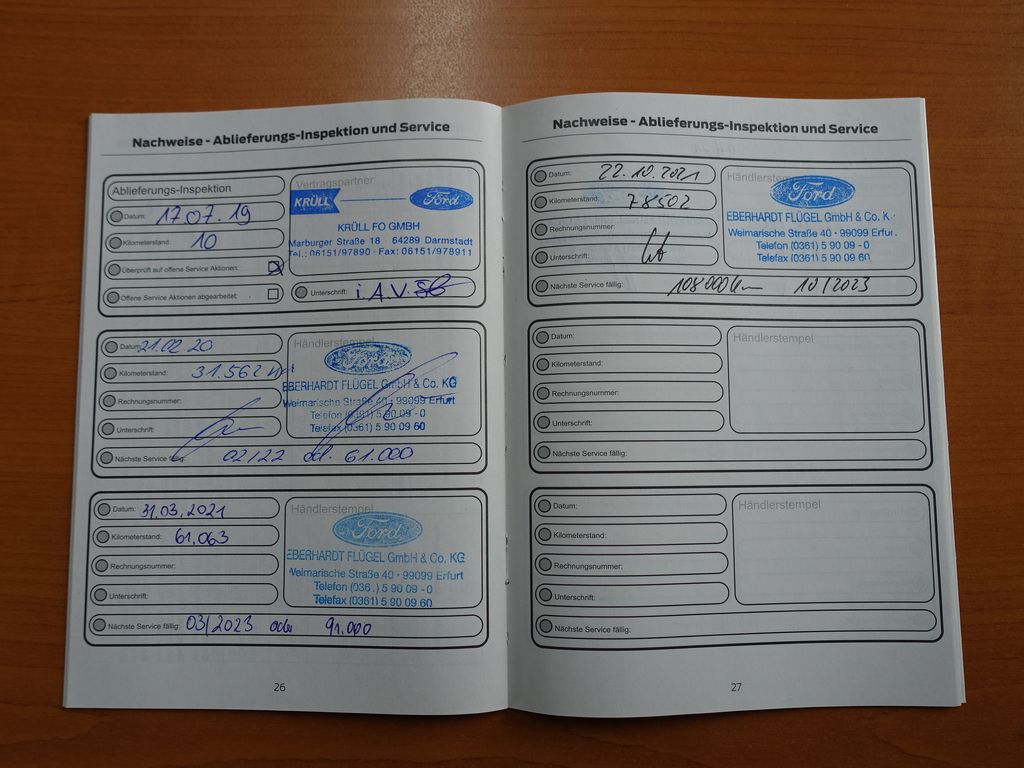 Nachweise - Ablieferungs-Inspektion und Service
Ablieferungs-Inspektion
Datum: 17.07.19
Kilometerstand: 10
Überprüft auf offene Service Aktionen:
Offene Service Aktionen abgearbeitet:
Vertragspartner
KRÜLL Ford
KRÜLL FO GMBH
Marburger Straße 18 64289 Darmstadt
Tel.: 06151/97890 · Fax: 06151/978911
Unterschrift: i.A.V.
Datum: 21.02.20
Kilometerstand: 31.562 km
Rechnungsnummer:
Unterschrift:
Händlerstempel
Ford
EBERHARDT FLÜGEL GmbH & Co. KG
Weimarische Straße 40 · 99099 Erfurt
Telefon (0361) 5 90 09 - 0
Telefax (0361) 5 90 09 60
Nächste Service fällig: 02/22 od. 61.000
Datum: 31.03.2021
Kilometerstand: 61.063
Rechnungsnummer:
Unterschrift:
Händlerstempel
Ford
EBERHARDT FLÜGEL GmbH & Co. KG
Weimarische Straße 40 · 99099 Erfurt
Telefon (036.) 5 90 09 - 0
Telefax (0361) 5 90 09 60
Nächste Service fällig: 03/2023 oder 91.000
26
Nachweise - Ablieferungs-Inspektion und Service
Datum: 22.10.2021
Kilometerstand: 78502
Rechnungsnummer:
Unterschrift:
Händlerstempel
Ford
EBERHARDT FLÜGEL GmbH & Co. K
Weimarische Straße 40 · 99099 Erfur
Telefon (0361) 5 90 09 - 0
Telefax (0361) 5 90 09 60
Nächste Service fällig: 108000km 10/2023
Datum:
Kilometerstand:
Rechnungsnummer:
Unterschrift:
Händlerstempel
Nächste Service fällig:
Datum:
Kilometerstand:
Rechnungsnummer:
Unterschrift:
Händlerstempel
Nächste Service fällig:
27